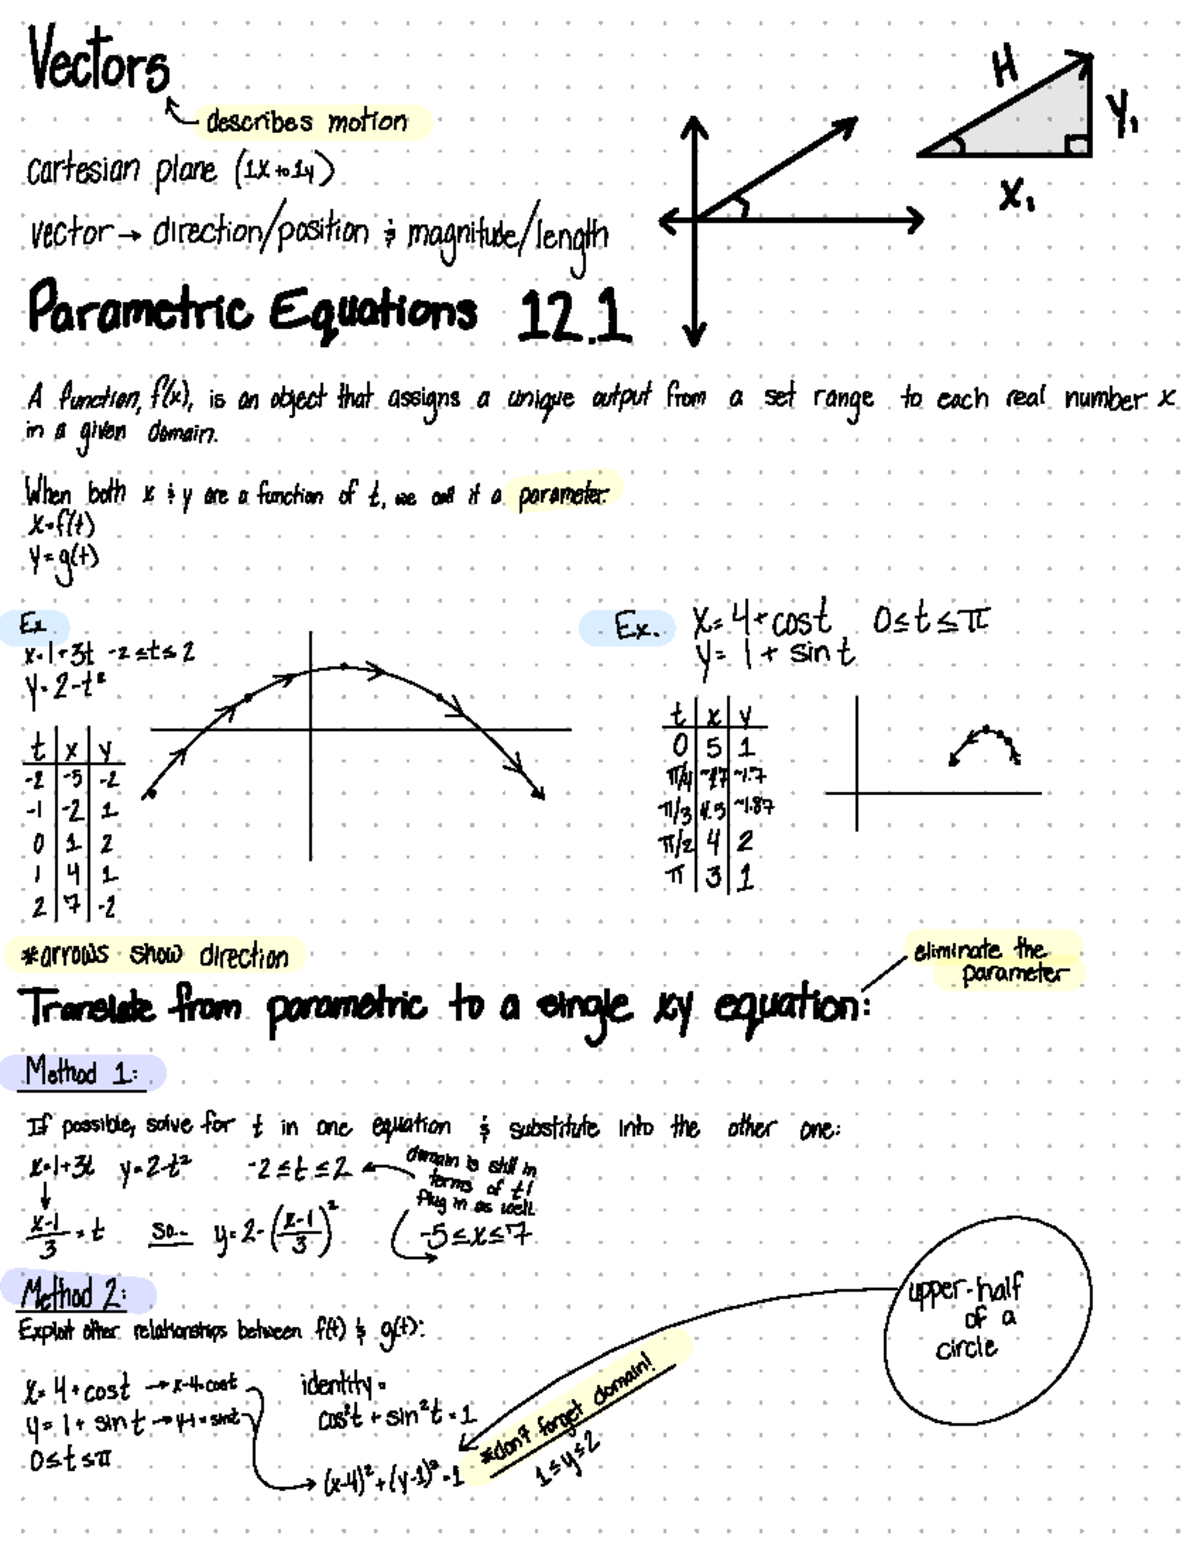 Vectors
describes motion
cartesian plane (1x to 1y)
vector → direction/position & magnitude/length
H
Y₁
X₁
Parametric Equations 12.1
A function, f(x), is an object that assigns a unique output from a set range to each real number x
in a given domain.
When both x & y are a function of t, we call it a parameter.
x=f(t)
y=g(t)
Ex
x=1+3t -2≤t≤2
y=2-t²
t x y
-2 -5 -2
-1 -2 1
0 1 2
1 4 1
2 7 -2
Ex. x=4+cost 0≤t≤π
y=1+sint
t x y
0 5 1
π/4 ~4.7 ~1.7
π/3 4.5 ~1.87
π/2 4 2
π 3 1
*arrows show direction
eliminate the
parameter
Translate from parametric to a single xy equation:
Method 1:
If possible, solve for t in one equation & substitute into the other one:
x=1+3t y=2-t² -2≤t≤2
domain is still in
terms of t!
Plug in as well.
x-1/3 = t so... y=2-(x-1/3)² -5≤x≤7
Method 2:
Exploit other relationships between f(t) & g(t):
upper-half
of a
circle
x=4+cost → x-4=cost
y=1+sint → y-1=sint
0≤t≤π
identity=
cos²t+sin²t=1
(x-4)²+(y-1)²=1
*don't forget domain!
1≤y≤2